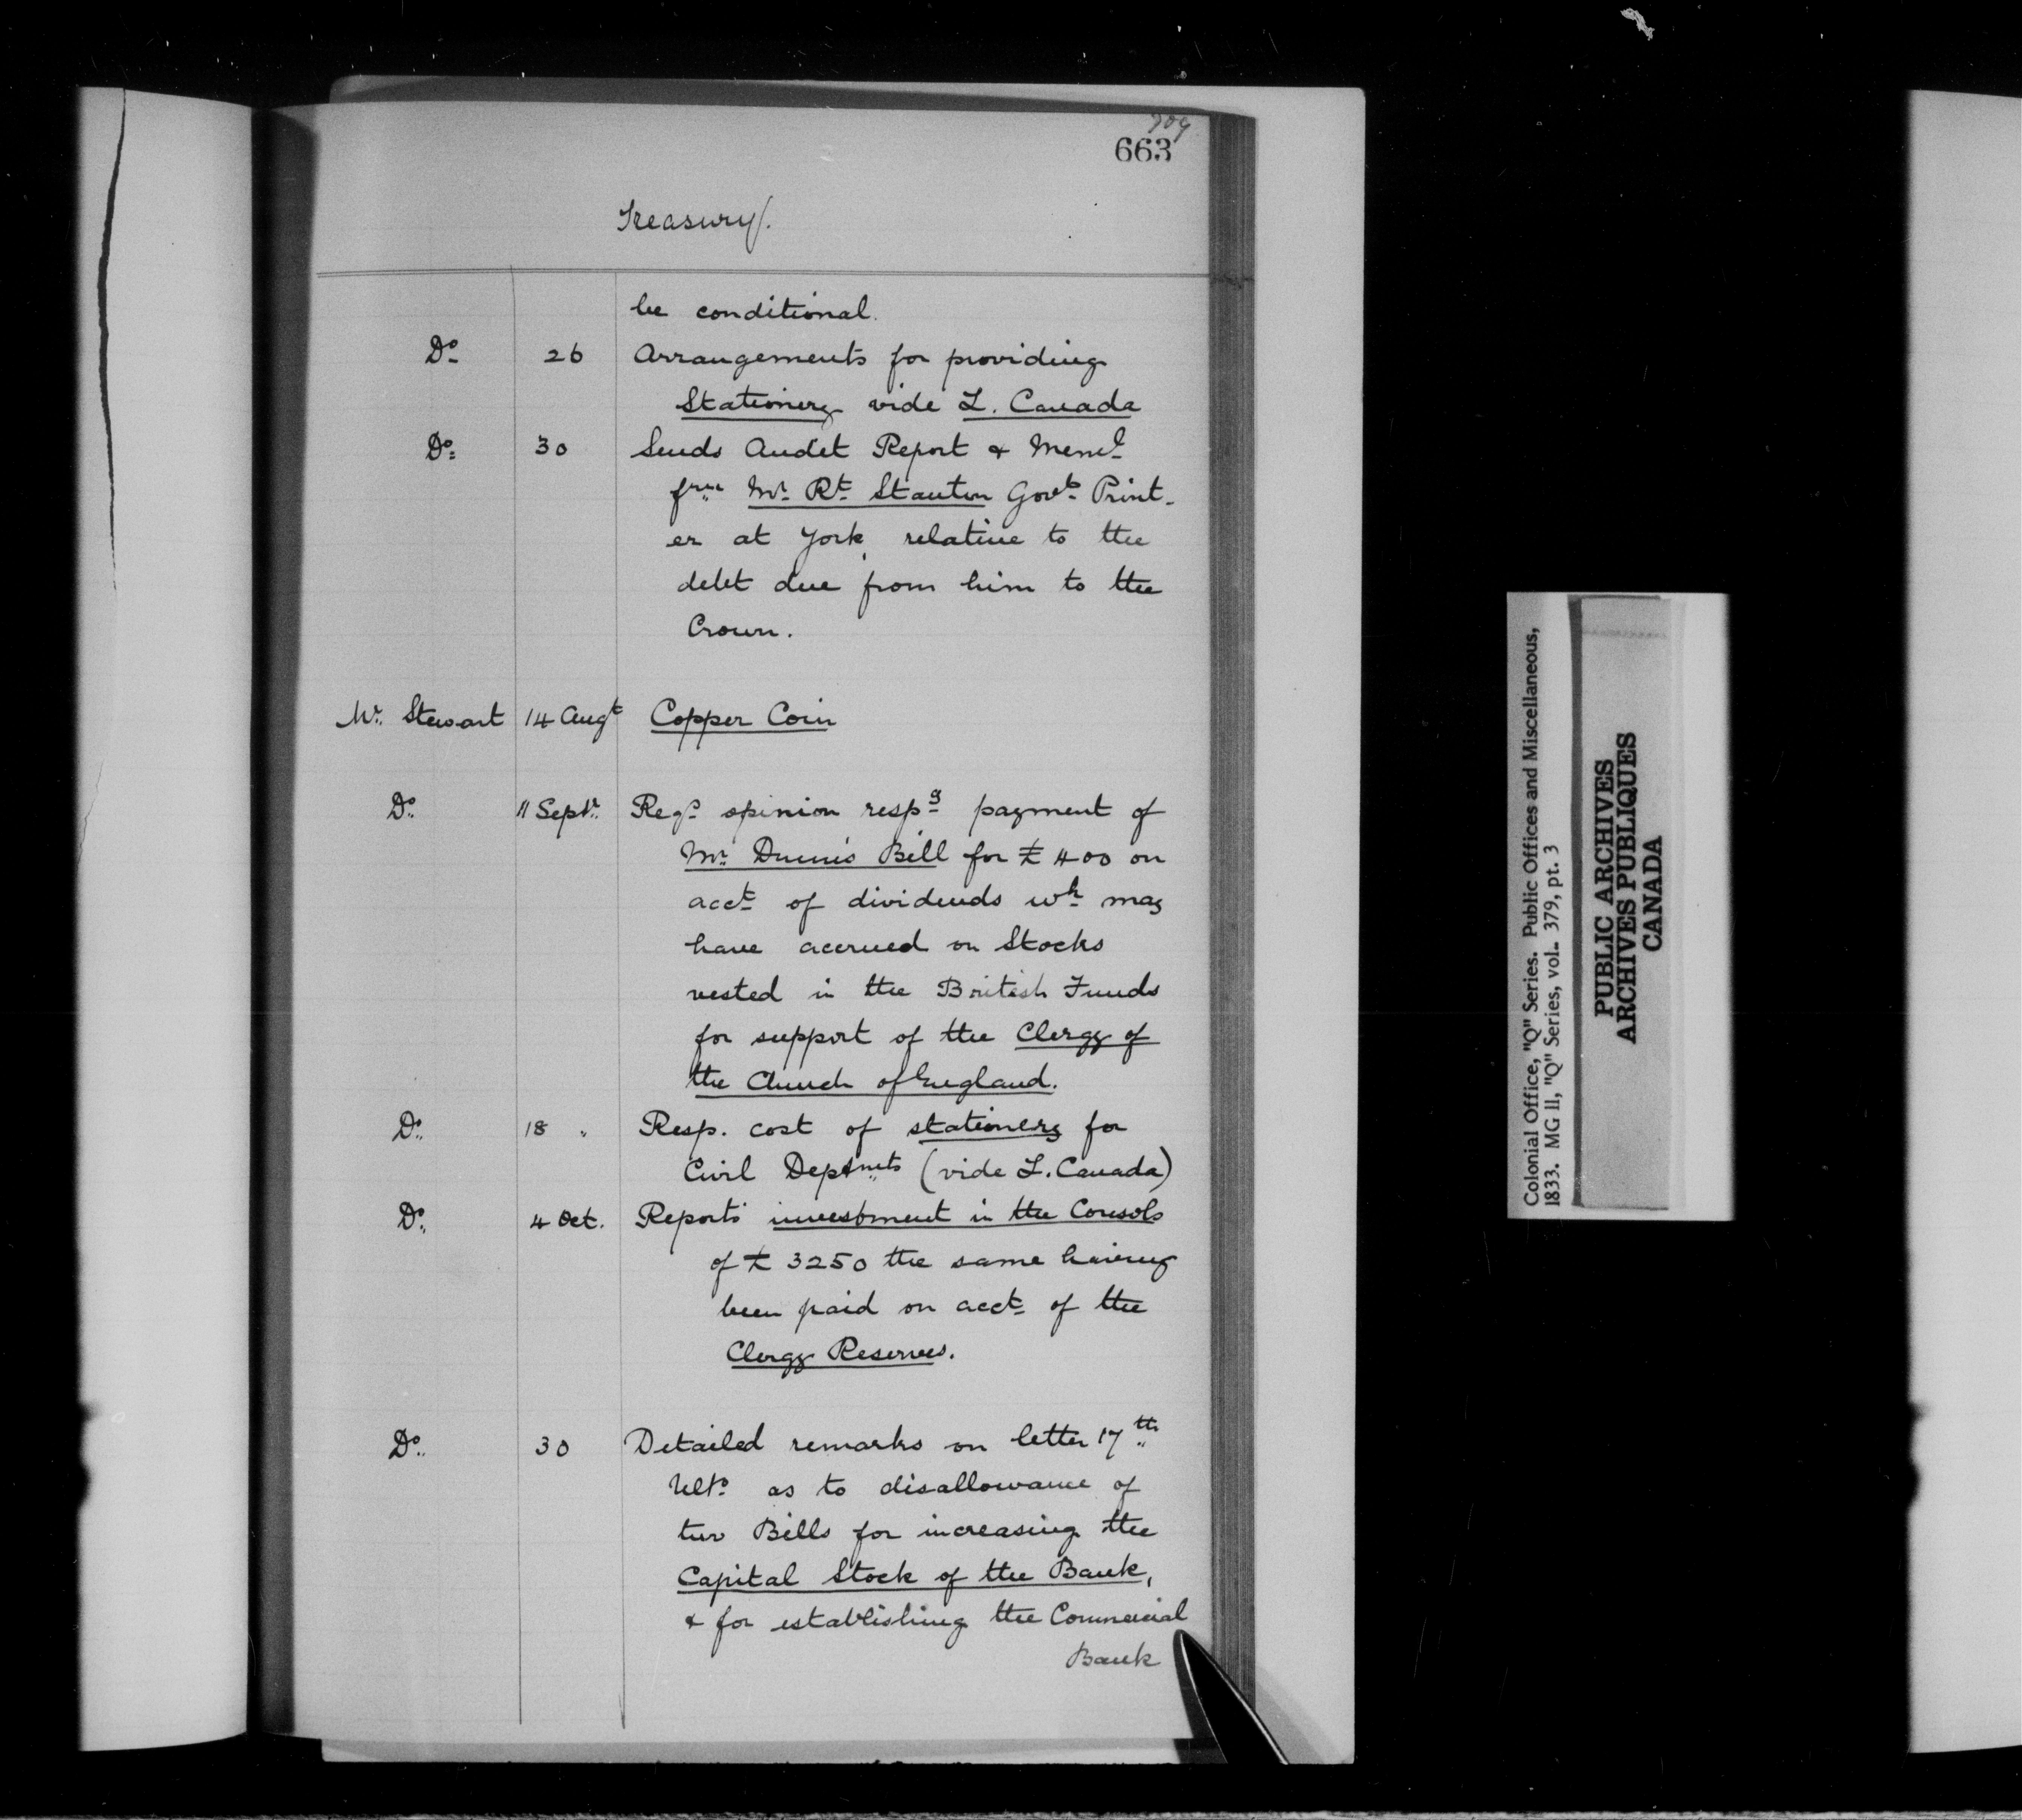 709
663
Treasury.
be conditional.
Do 26 Arrangements for providing
Stationery vide L. Canada
Do 30 Sends Audet Report & Meml
from Mr Rt Stanton Govt Print-
er at York, relative to the
debt due from him to the
Crown.
Mr Stewart 14 Augt Copper Coin
Do 11 Septr Reqs opinion respg payment of
Mr Dunn's Bill for £400 on
acct of dividends wh may
have accrued on Stocks
vested in the British Funds
for support of the Clergy of
the Church of England.
Do 18 " Resp. cost of stationery for
Civil Deptmts (vide L. Canada)
Do 4 Oct. Reports investment in the Consols
of £3250 the same having
been paid on acct of the
Clergy Reserves.
Do 30 Detailed remarks on letter 17th
Ulto as to disallowance of
two Bills for increasing the
Capital Stock of the Bank,
& for establishing the Commercial
Bank
Colonial Office, "Q" Series. Public Offices and Miscellaneous,
1833. MG 11, "Q" Series, vol. 379, pt. 3
PUBLIC ARCHIVES
ARCHIVES PUBLIQUES
CANADA